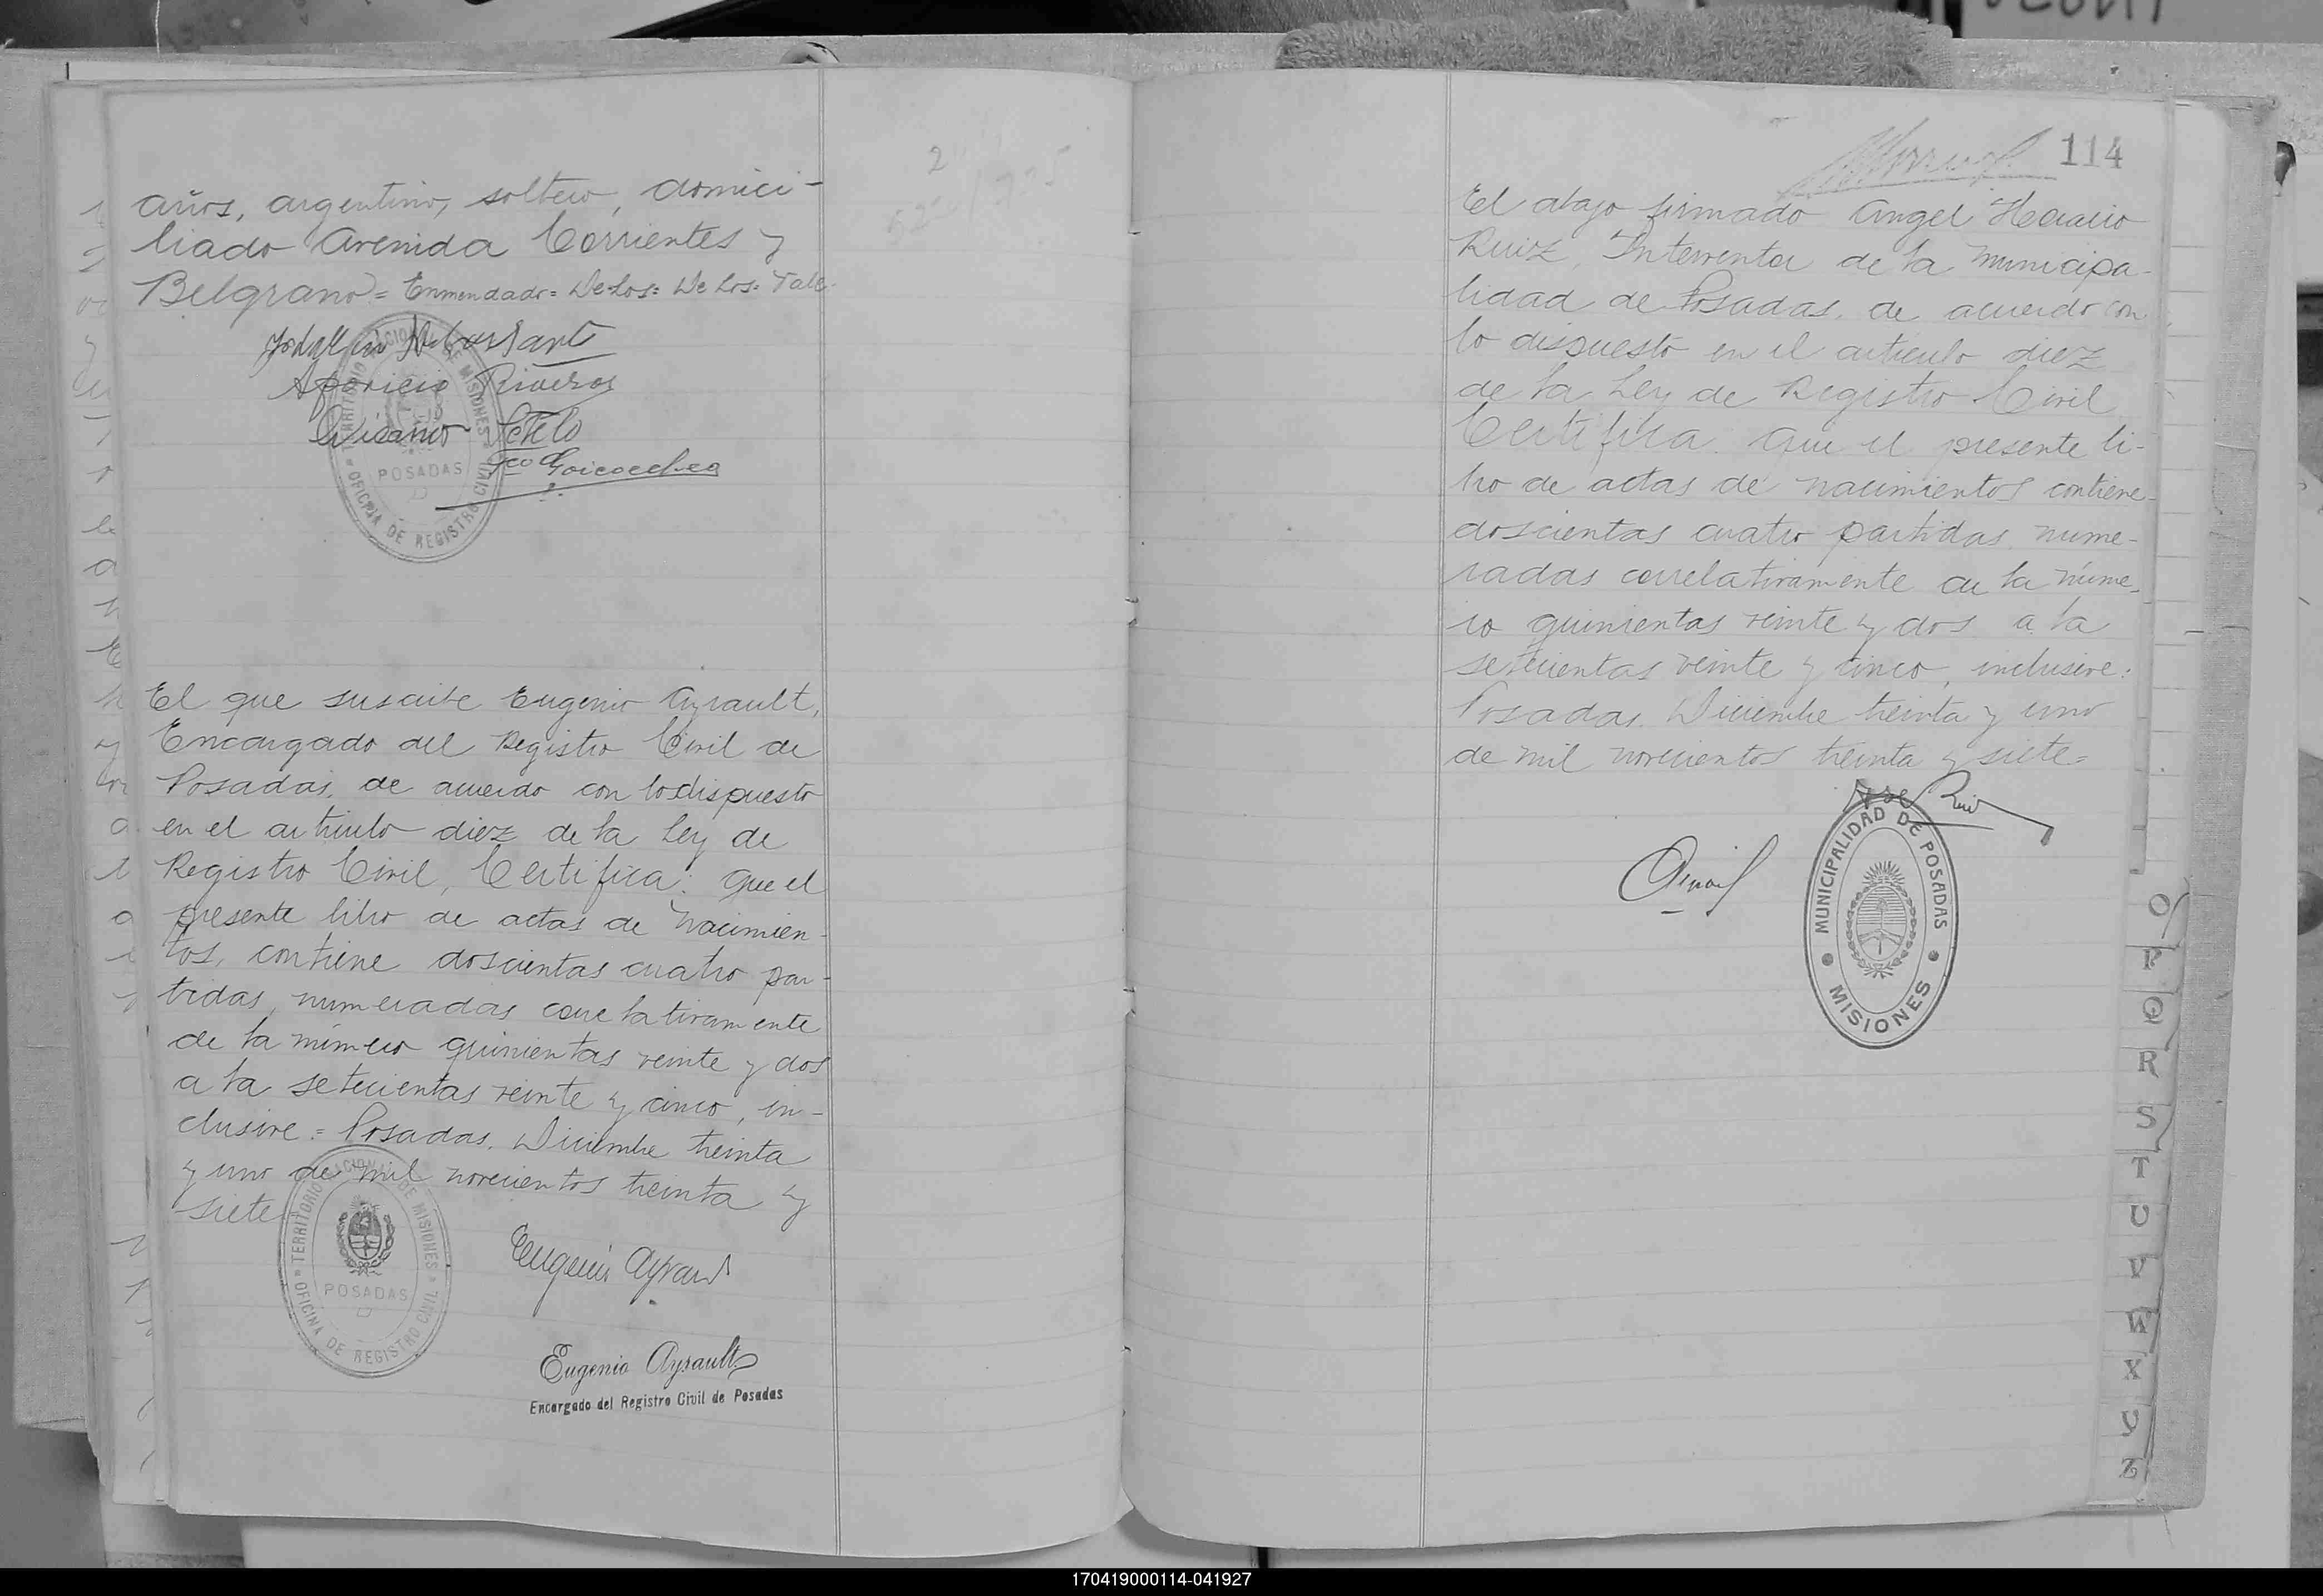 años, argentino, soltero, domici-
liado Avenida Corrientes y
Belgrano = Enmendado = De los = De los = Vale
Aparicio Riveros
Sotelo
Fco Goicoechea
TERRITORIO NACIONAL DE MISIONES
POSADAS
OFICINA DE REGISTRO CIVIL
El que suscribe Eugenio Ayrault,
Encargado del Registro Civil de
Posadas, de acuerdo con lo dispuesto
en el articulo diez de la Ley de
Registro Civil, Certifica: Que el
presente libro de actas de nacimien-
tos, contiene doscientas cuatro par-
tidas, numeradas correlativamente
de la número quinientas veinte y dos
a la setecientas veinte y cinco, in-
clusive = Posadas, Diciembre treinta
y uno de mil novecientos treinta y
siete
TERRITORIO NACIONAL DE MISIONES
POSADAS
OFICINA DE REGISTRO CIVIL
Eugenio Ayrault
Eugenio Ayrault
Encargado del Registro Civil de Posadas
114
El abajo firmado Angel Horacio
Ruiz, Interventor de la Municipa-
lidad de Posadas, de acuerdo con
lo dispuesto en el articulo diez
de la Ley de Registro Civil
Certifica: Que el presente li-
bro de actas de nacimientos contiene
doscientas cuatro partidas nume-
radas correlativamente de la núme-
ro quinientas veinte y dos a la
setecientas veinte y cinco, inclusive:
Posadas, Diciembre treinta y uno
de mil novecientos treinta y siete =
Ruiz
MUNICIPALIDAD DE POSADAS
MISIONES
O
P
Q
R
S
T
U
V
W
X
Y
Z
170419000114-041927